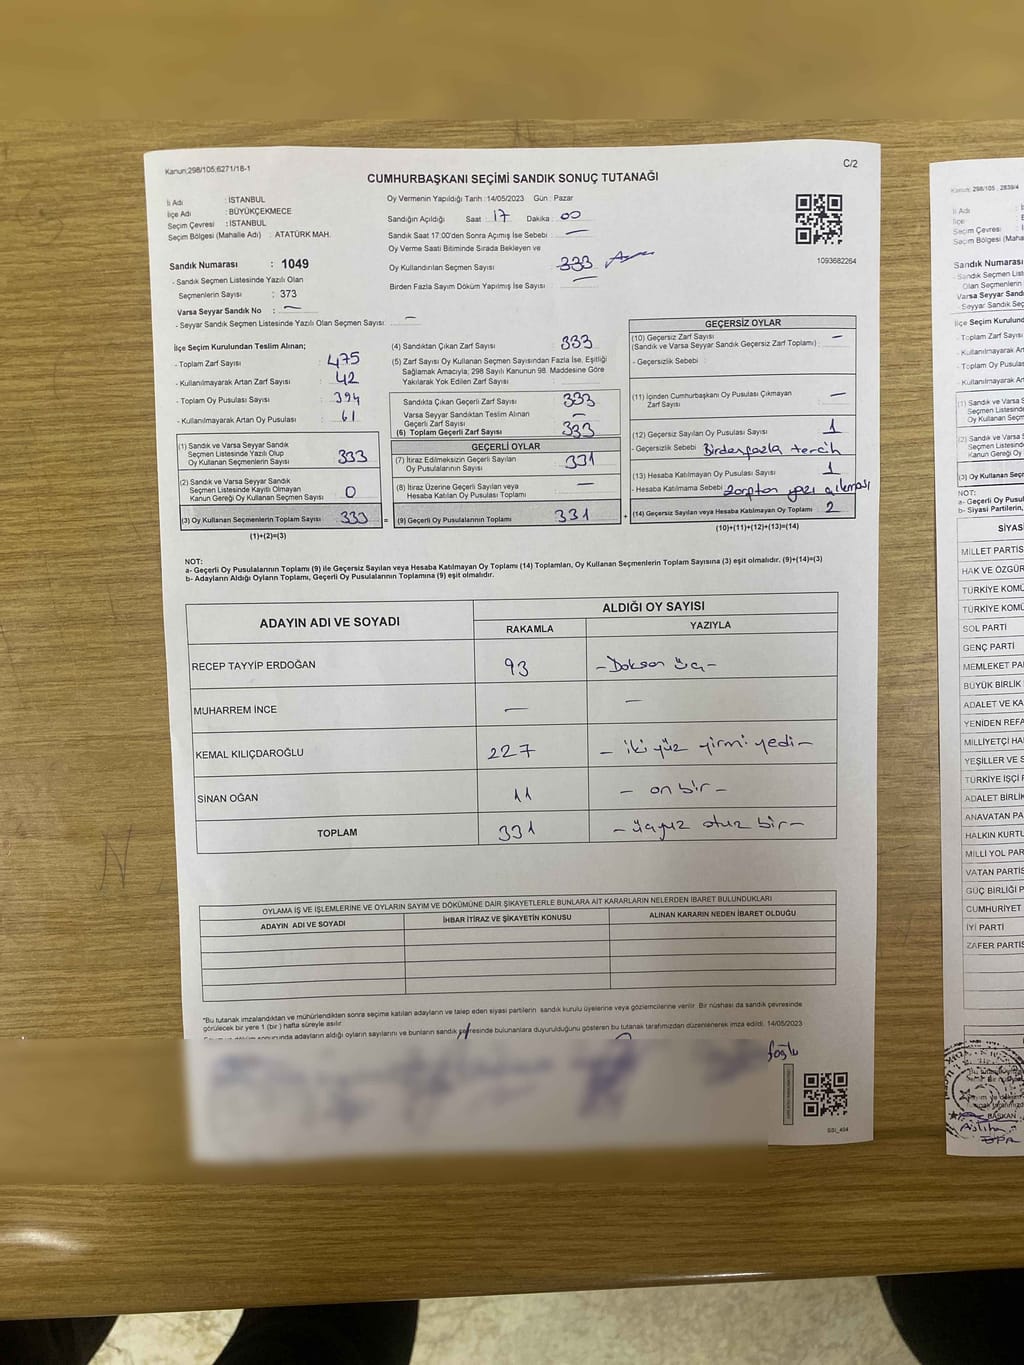 Kanun;298/105;6271/18-1
C/2
CUMHURBAŞKANI SEÇİMİ SANDIK SONUÇ TUTANAĞI
İli Adı : İSTANBUL
İlçe Adı : BÜYÜKÇEKMECE
Seçim Çevresi : İSTANBUL
Seçim Bölgesi (Mahalle Adı) : ATATÜRK MAH.
Sandık Numarası : 1049
- Sandık Seçmen Listesinde Yazılı Olan
Seçmenlerin Sayısı : 373
Varsa Seyyar Sandık No : —
- Seyyar Sandık Seçmen Listesinde Yazılı Olan Seçmen Sayısı: —
Oy Vermenin Yapıldığı Tarih :14/05/2023 Gün : Pazar
Sandığın Açıldığı Saat : 17 Dakika : 00
Sandık Saat 17:00'den Sonra Açımış İse Sebebi : —
Oy Verme Saati Bitiminde Sırada Bekleyen ve
Oy Kullandırılan Seçmen Sayısı : 333
Birden Fazla Sayım Döküm Yapılmış İse Sayısı : —
1093682264
İlçe Seçim Kurulundan Teslim Alınan;
- Toplam Zarf Sayısı : 475
- Kullanılmayarak Artan Zarf Sayısı : 42
- Toplam Oy Pusulası Sayısı : 394
- Kullanılmayarak Artan Oy Pusulası : 61
(1) Sandık ve Varsa Seyyar Sandık
Seçmen Listesinde Yazılı Olup
Oy Kullanan Seçmenlerin Sayısı : 333
(2) Sandık ve Varsa Seyyar Sandık
Seçmen Listesinde Kayıtlı Olmayan
Kanun Gereği Oy Kullanan Seçmen Sayısı : 0
(3) Oy Kullanan Seçmenlerin Toplam Sayısı : 333 =
(1)+(2)=(3)
(4) Sandıktan Çıkan Zarf Sayısı : 333
(5) Zarf Sayısı Oy Kullanan Seçmen Sayısından Fazla İse, Eşitliği
Sağlamak Amacıyla; 298 Sayılı Kanunun 98. Maddesine Göre
Yakılarak Yok Edilen Zarf Sayısı :
Sandıkta Çıkan Geçerli Zarf Sayısı : 333
Varsa Seyyar Sandıktan Teslim Alınan
Geçerli Zarf Sayısı : —
(6) Toplam Geçerli Zarf Sayısı : 333
GEÇERLİ OYLAR
(7) İtiraz Edilmeksizin Geçerli Sayılan
Oy Pusulalarının Sayısı : 331
(8) İtiraz Üzerine Geçerli Sayılan veya
Hesaba Katılan Oy Pusulası Toplamı : —
(9) Geçerli Oy Pusulalarının Toplamı : 331 +
GEÇERSİZ OYLAR
(10) Geçersiz Zarf Sayısı
(Sandık ve Varsa Seyyar Sandık Geçersiz Zarf Toplamı) : —
- Geçersizlik Sebebi :
(11) İçinden Cumhurbaşkanı Oy Pusulası Çıkmayan
Zarf Sayısı : —
(12) Geçersiz Sayılan Oy Pusulası Sayısı : 1
- Geçersizlik Sebebi : Birden fazla tercih
(13) Hesaba Katılmayan Oy Pusulası Sayısı : 1
- Hesaba Katılmama Sebebi : zarftan yazı çıkması
(14) Geçersiz Sayılan veya Hesaba Katılmayan Oy Toplamı : 2
(10)+(11)+(12)+(13)=(14)
NOT:
a- Geçerli Oy Pusulalarının Toplamı (9) ile Geçersiz Sayılan veya Hesaba Katılmayan Oy Toplamı (14) Toplamları, Oy Kullanan Seçmenlerin Toplam Sayısına (3) eşit olmalıdır. (9)+(14)=(3)
b- Adayların Aldığı Oyların Toplamı, Geçerli Oy Pusulalarının Toplamına (9) eşit olmalıdır.
ADAYIN ADI VE SOYADI
ALDIĞI OY SAYISI
RAKAMLA YAZIYLA
RECEP TAYYİP ERDOĞAN 93 -Doksan üç-
MUHARREM İNCE — —
KEMAL KILIÇDAROĞLU 227 - iki yüz yirmi yedi -
SİNAN OĞAN 11 - on bir -
TOPLAM 331 - üçyüz otuz bir -
OYLAMA İŞ VE İŞLEMLERİNE VE OYLARIN SAYIM VE DÖKÜMÜNE DAİR ŞİKAYETLERLE BUNLARA AİT KARARLARIN NELERDEN İBARET BULUNDUKLARI
ADAYIN ADI VE SOYADI İHBAR İTİRAZ VE ŞİKAYETİN KONUSU ALINAN KARARIN NEDEN İBARET OLDUĞU
"Bu tutanak imzalandıktan ve mühürlendikten sonra seçime katılan adayların ve talep eden siyasi partilerin sandık kurulu üyelerine veya gözlemcilerine verilir. Bir nüshası da sandık çevresinde
görülecek bir yere 1 (bir) hafta süreyle asılır.
adayların aldığı oyların sayılarını ve bunların sandık çevresinde bulunanlara duyurulduğunu gösteren bu tutanak tarafımızdan düzenlenerek imza edildi. 14/05/2023
SSI_494
Kanun; 298/105 , 2839/4
İli Adı
İlçe
Seçim Çevresi
Seçim Bölgesi (Mah
Sandık Numarası
- Sandık Seçmen List
Olan Seçmenlerin
Varsa Seyyar Sand
- Seyyar Sandık Seç
İlçe Seçim Kurulund
- Toplam Zarf Sayıs
- Kullanılmayarak Art
- Toplam Oy Pusula
- Kullanılmayarak Art
(1) Sandık ve Varsa S
Seçmen Listesind
Oy Kullanan Seçm
(2) Sandık ve Varsa S
Seçmen Listesind
Kanun Gereği Oy K
(3) Oy Kullanan Seçm
NOT:
a- Geçerli Oy Pusul
b- Siyasi Partilerin,
SİYAS
MİLLET PARTİS
HAK VE ÖZGÜR
TÜRKİYE KOMÜ
TÜRKİYE KOMÜ
SOL PARTİ
GENÇ PARTİ
MEMLEKET PA
BÜYÜK BİRLİK
ADALET VE KA
YENİDEN REFA
MİLLİYETÇİ HA
YEŞİLLER VE S
TÜRKİYE İŞÇİ P
ADALET BİRLİK
ANAVATAN PA
HALKIN KURTU
MİLLİ YOL PAR
VATAN PARTİS
GÜÇ BİRLİĞİ P
CUMHURİYET
İYİ PARTİ
ZAFER PARTİS
BAŞKAN